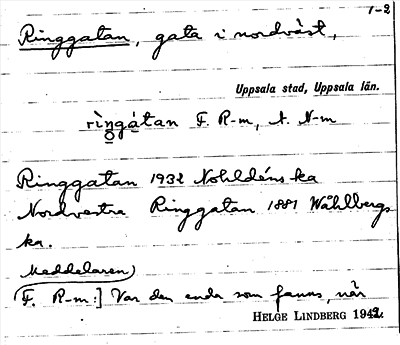 1-2
Ringgatan, gata i nordväst,
Uppsala stad, Uppsala län.
ringgàtan F. R-m, A. N-m
Ringgatan 1932 Nohldéns ka
Nordvestra Ringgatan 1881 Wåhlbergs
ka.
Meddelaren
[F. R-m:] Var den enda som fanns, når
HELGE LINDBERG 1942.